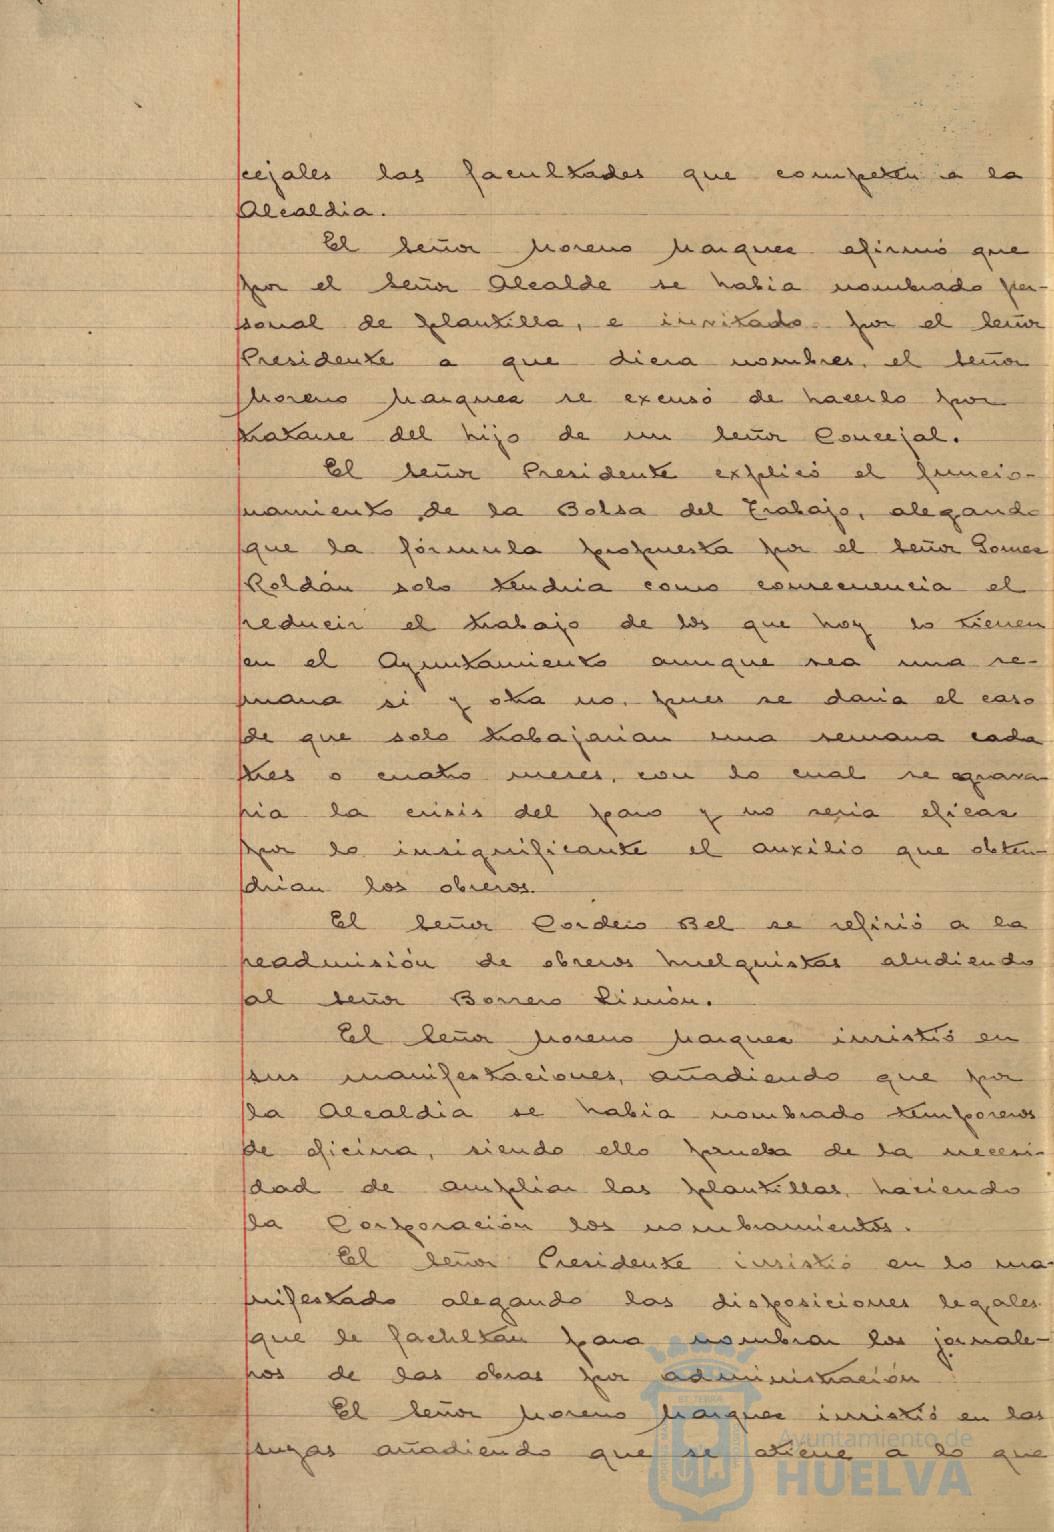 cejales las facultades que competen a la
Alcaldia.
El señor Moreno Marquez afirmó que
por el señor Alcalde se habia nombrado per-
sonal de plantilla, e invitado por el señor
Presidente a que diera nombres, el señor
Moreno Marquez se excusó de hacerlo por
tratarse del hijo de un señor Concejal.
El señor Presidente explicó el funcio-
namiento de la Bolsa del Trabajo, alegando
que la fórmula propuesta por el señor Gomez
Roldán solo tendria como consecuencia el
reducir el trabajo de los que hoy lo tienen
en el Ayuntamiento aunque sea una se-
mana si y otra no, pues se daria el caso
de que solo trabajarian una semana cada
tres o cuatro meses, con lo cual se agrava-
ria la crisis del paro y no seria eficaz
por lo insignificante el auxilio que obten-
drian los obreros.
El señor Cordero Bel se refirió a la
readmisión de obreros huelguistas aludiendo
al señor Borrero Limón.
El señor Moreno Marquez insistió en
sus manifestaciones, añadiendo que por
la Alcaldia se habia nombrado temporeros
de oficina, siendo ello prueba de la necesi-
dad de ampliar las plantillas, haciendo
la Corporación los nombramientos.
El señor Presidente insistió en lo ma-
nifestado alegando las disposiciones legales
que le facultan para nombrar los jornale-
ros de las obras por administración
El señor Moreno Marquez insistió en las
suyas añadiendo que se atiene a lo que
Ayuntamiento de
HUELVA